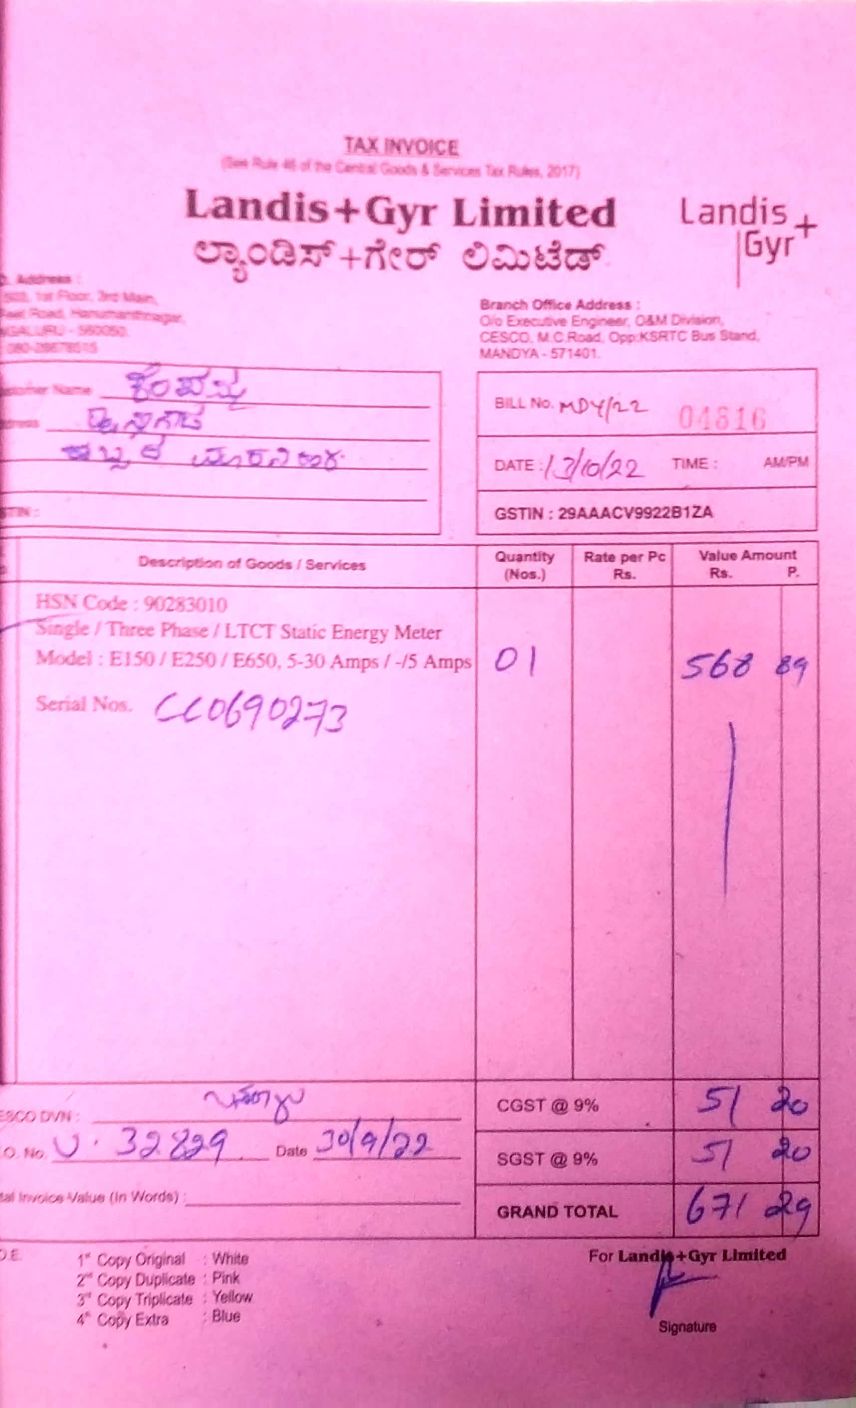 TAX INVOICE
(See Rule 46 of the Central Goods & Services Tax Rules, 2017)
Landis+Gyr Limited
ಲ್ಯಾಂಡಿಸ್+ಗೇರ್ ಲಿಮಿಟೆಡ್
Landis
Gyr+
Address :
1st Floor, 3rd Main,
Road, Hanumanthnagar,
Branch Office Address :
O/o Executive Engineer, O&M Division,
CESCO, M.C.Road, Opp:KSRTC Bus Stand,
MANDYA - 571401.
Name ಕೆಂಪಮ್ಮ
BILL No. MDY/22 04816
DATE : 13/10/22 TIME : AM/PM
GSTIN : 29AAACV9922B1ZA
Description of Goods / Services Quantity (Nos.) Rate per Pc Rs. Value Amount Rs. P.
HSN Code : 90283010
Single / Three Phase / LTCT Static Energy Meter
Model : E150 / E250 / E650, 5-30 Amps / -/5 Amps 01 568 89
Serial Nos. CC0690273
DVN :
CGST @ 9% 51 20
O. No. U. 32829 Date 30/9/22
SGST @ 9% 51 20
Invoice Value (In Words) :
GRAND TOTAL 671 29
1st Copy Original : White
2nd Copy Duplicate : Pink
3rd Copy Triplicate : Yellow
4th Copy Extra : Blue
For Landis+Gyr Limited
Signature